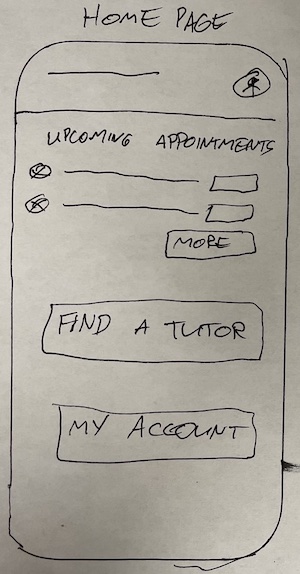 HOME PAGE
UPCOMING APPOINTMENTS
MORE
FIND A TUTOR
MY ACCOUNT